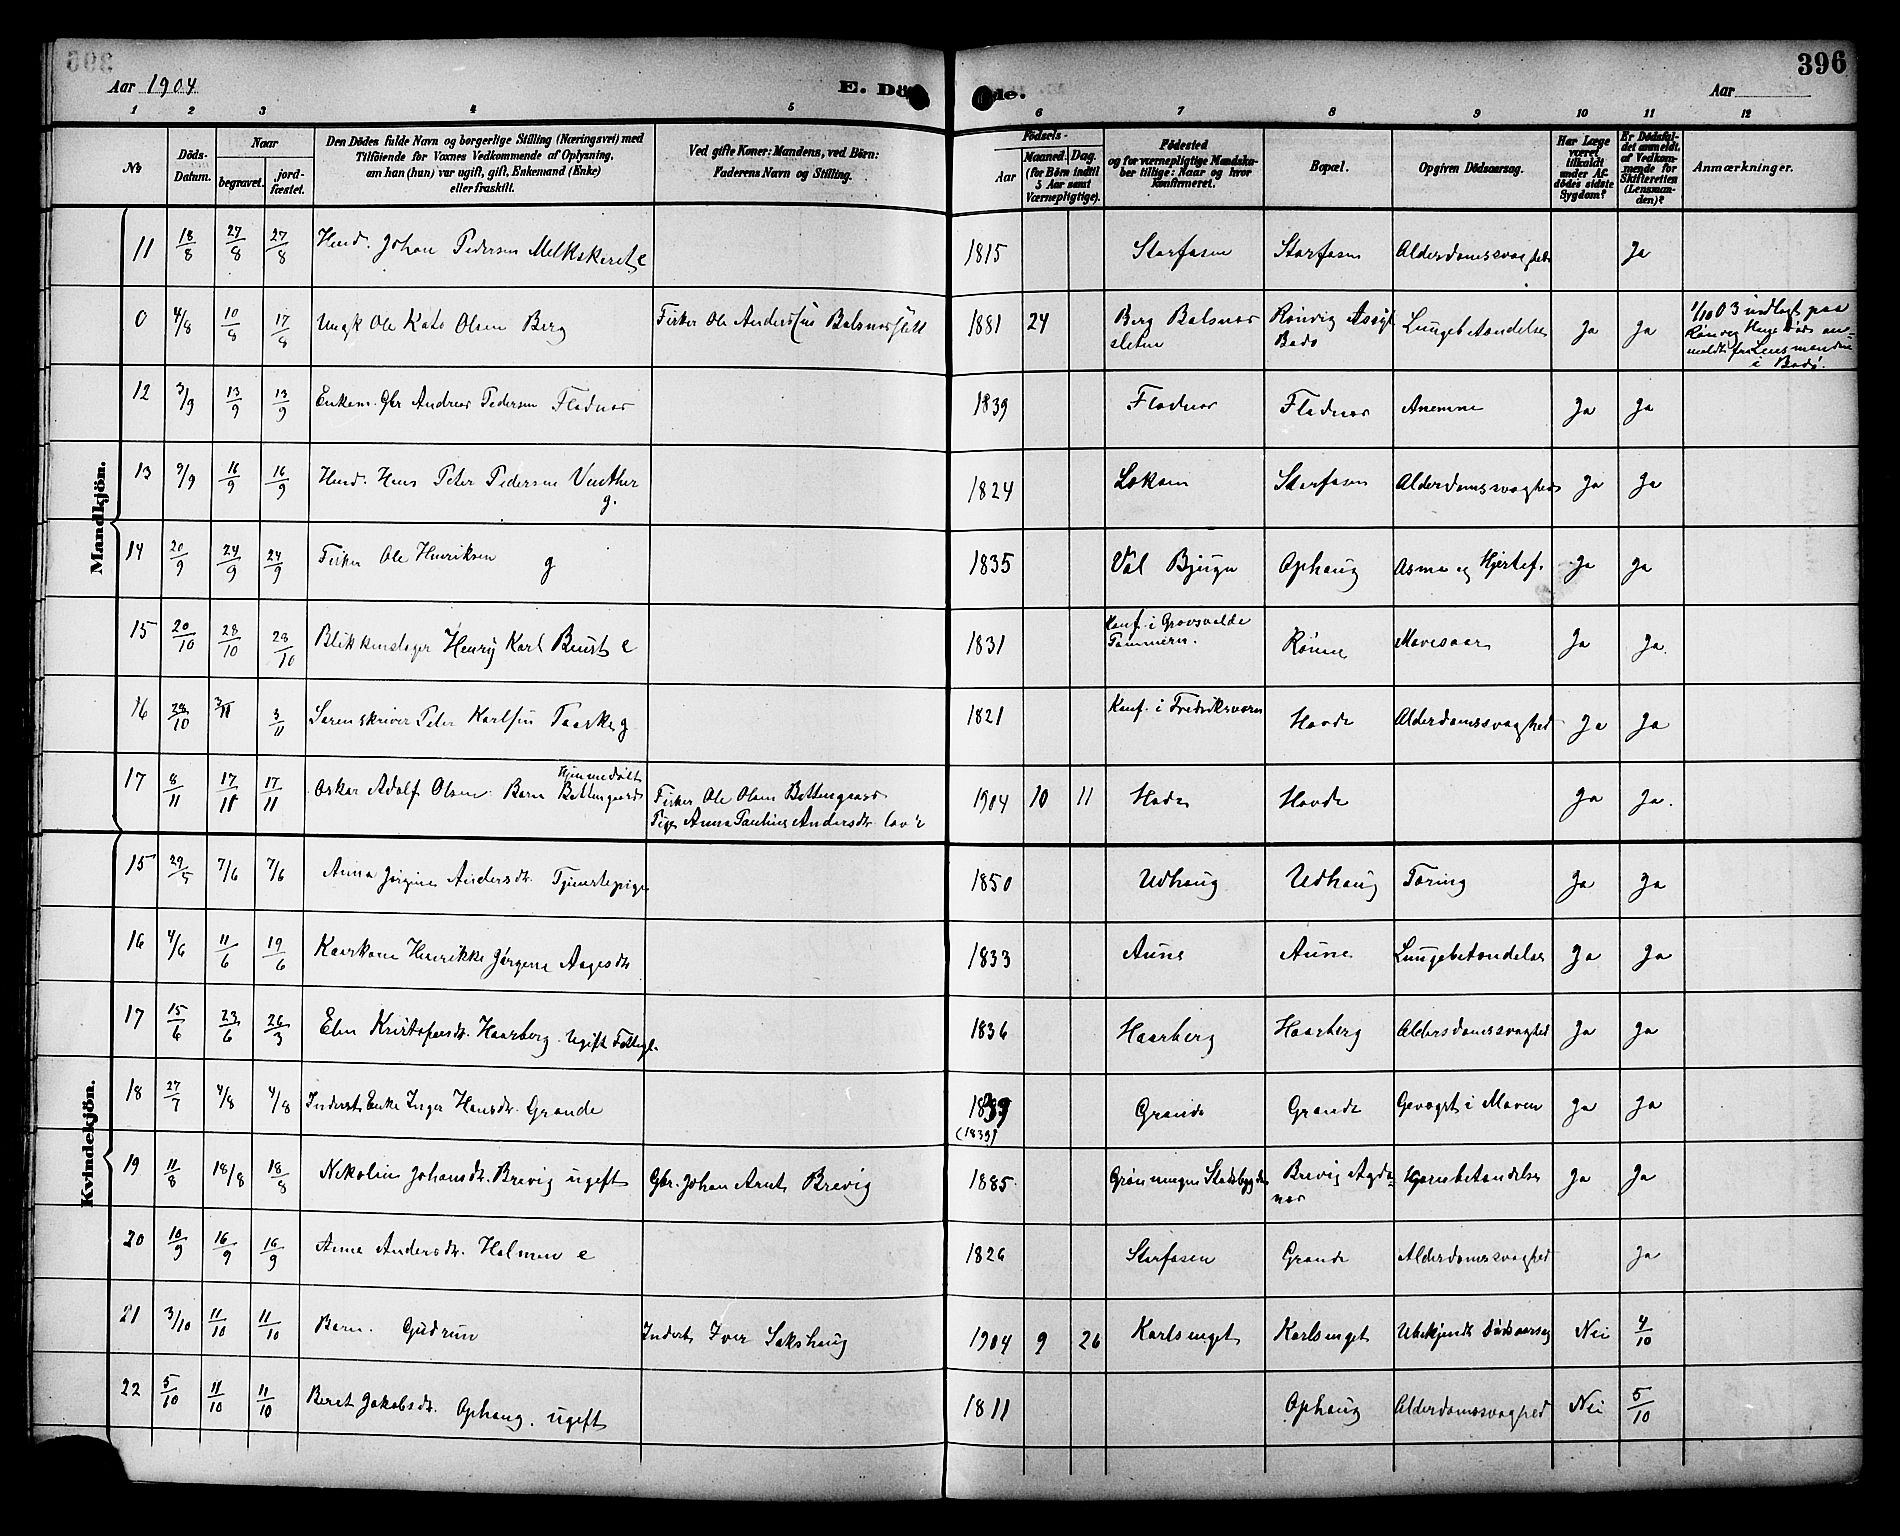 396
Aar 1904
E. Dö de.
Aar
1 2 3 4 5 6 7 8 9 10 11 12
No
Döds-Datum.
Naar
begravet.
jord-fæstet.
Den Dödes fulde Navn og borgerlige Stilling (Næringsvei) med
Tilföiende for Voxnes Vedkommende af Oplysning,
om han (hun) var ugift, gift, Enkemand (Enke)
eller fraskilt.
Ved gifte Koner: Mandens, ved Börn:
Faderens Navn og Stilling.
Födsels-
Aar
Maaned. Dag.
(for Börn indtil
5 Aar samt
Værnepligtige).
Födested
og for værnepligtige Mandska-
ber tillige: Naar og hvor
konfirmeret.
Bopæl.
Opgiven Dödsaarsag.
Har Læge
været
tilkaldt
under Af-
dödes sidste
Sygdom?
Er Dödsfal-
det anmeldt
af Vedkom-
mende for
Skifteretten
(Lensman-
den)?
Anmærkninger.
Mandkjön.
11 18/8 27/8 27/8 Johan Pedersen Melkskaret e 1815 Storfosen Storfosen Alderdomssvaghed Ja
0 4/8 10/8 17/8 Ungk Ole Kato Olsen Berg Fisker Ole Anders 1881 24 Berg Balsnes
sletten Rönvig Asyl
Bodö Lungebetændelse Ja Ja 1/10 03 indlagt paa
Rönvig Hans död an-
meldt fra Lensmanden
i Bodö.
12 3/9 13/9 13/9 Enkem. Gbr Andreas Pedersen Flodnes 1839 Flodnes Flodnes Anemme Ja Ja
13 9/9 16/9 16/9 Hans Peter Pedersen Vinther
g. 1824 Storfosen Alderdomssvaghed Ja Ja
14 20/9 24/9 24/9 Fisker Ole Henriksen g 1835 Val Bjugn Ophaug Asma og Hjertef. Ja Ja
15 20/10 28/10 28/10 Blikkenslager Henry Karl e 1831 Konf. i
Pommern. Rönne Mavesaar Ja Ja.
16 28/10 3/11 3/11 Sorenskriver Peter g 1821 Konf. i Fredriksværn Hovde Alderdomssvaghed Ja Ja
17 8/11 17/11 17/11 Oskar Adolf Olsen Barn Hjemmedöbt
Bottengaard Fisker Ole Olsen Bottengaard
Pige Anna Pauline Andersdtr. 1904 10 11 Hovde Hovde Ja Ja.
Kvindekjön.
15 29/5 7/6 7/6 Anna Jörgine Andersdtr. Tjenestepige 1850 Udhaug Udhaug Tæring Ja Ja
16 4/6 11/6 19/6 Kaarkone Henrikke Jörgine Aagesdtr 1833 Aune Aune Lungebetændelse Ja Ja
17 15/6 23/6 26/3 Elen Kristofersdtr. Haarberg. Ugift 1836 Haarberg Haarberg Aldersdomssvaghed Ja Ja
18 27/7 4/8 4/8 Inderst Enke Inger Hansdtr. Grande 1839
(1839) Grande Grande Gevækst i Maven Ja Ja
19 11/8 18/8 18/8 Nikoline Johansdtr. Brevig ugift Gbr. Johan Arnt Brevig 1885 Grönningen Stadsbygden Brevig Agde-
nes Hjernebetændelse Ja Ja
20 10/9 16/9 16/9 Anna Andersdtr. Holmen e 1826 Storfosen Grande Alderdomssvaghed Ja
21 3/10 11/10 11/10 Barn. Gudrun Inderst Iver Sakshaug 1904 9 26 Karlsenget Karlsenget Ubekjendt Dödsaarsag Nei 4/10
22 5/10 11/10 11/10 Beret Jakobsdtr. Ophaug. ugift 1811 Ophaug Alderdomssvaghed Nei 5/10